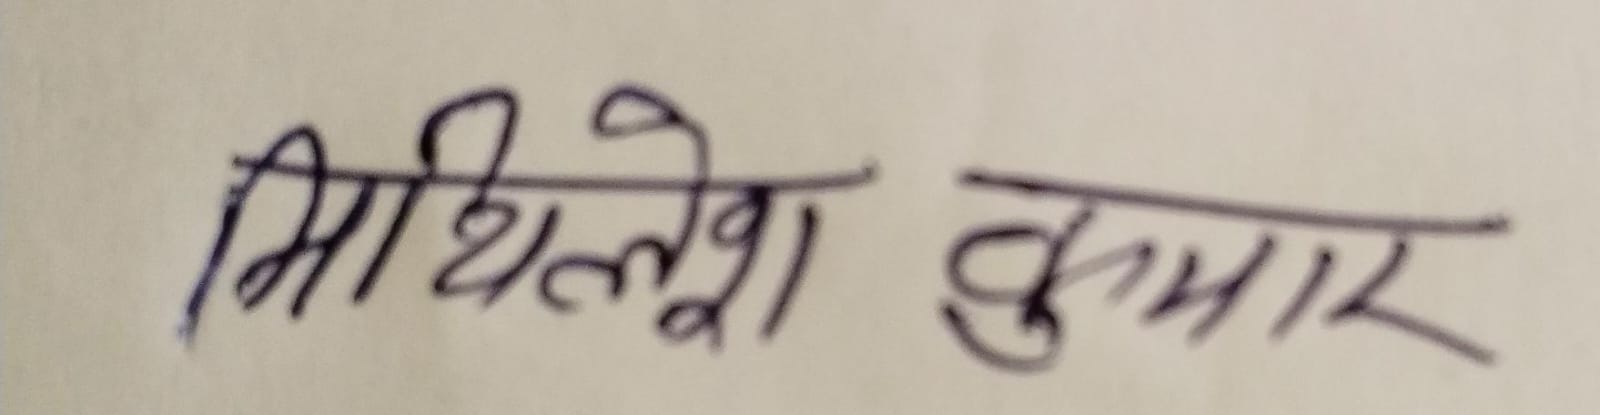 मिथिलेश कुमार